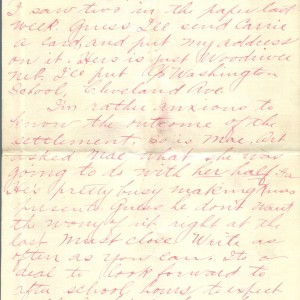 I saw two in the paper last
week. Guess I'll send Carrie
a card, and put my address
on it. Hers is just Woodviver
Net. I'll put % Washington
School, Cleveland Ave
I'm rather anxious to
know the outcome of the
settlement. So is Mae. Art
asked Mae what she was
going to do with her half.
He's pretty busy making Xmas
presents. Guess he don't want
the worry of it right at the
last. Must close. Write as
often as you can. It's a
deal to look forward to
after school hours to expect